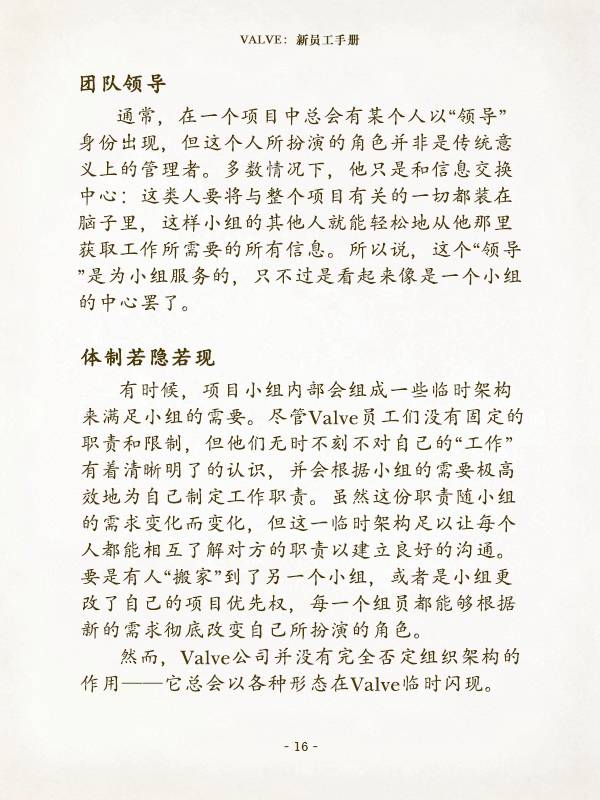 VALVE：新员工手册
团队领导
通常，在一个项目中总会有某个人以“领导”
身份出现，但这个人所扮演的角色并非是传统意
义上的管理者。多数情况下，他只是和信息交换
中心：这类人要将与整个项目有关的一切都装在
脑子里，这样小组的其他人就能轻松地从他那里
获取工作所需要的所有信息。所以说，这个“领导
”是为小组服务的，只不过是看起来像是一个小组
的中心罢了。
体制若隐若现
有时候，项目小组内部会组成一些临时架构
来满足小组的需要。尽管Valve员工们没有固定的
职责和限制，但他们无时不刻不对自己的“工作”
有着清晰明了的认识，并会根据小组的需要极高
效地为自己制定工作职责。虽然这份职责随小组
的需求变化而变化，但这一临时架构足以让每个
人都能相互了解对方的职责以建立良好的沟通。
要是有人“搬家”到了另一个小组，或者是小组更
改了自己的项目优先权，每一个组员都能够根据
新的需求彻底改变自己所扮演的角色。
然而，Valve公司并没有完全否定组织架构的
作用——它总会以各种形态在Valve临时闪现。
- 16 -